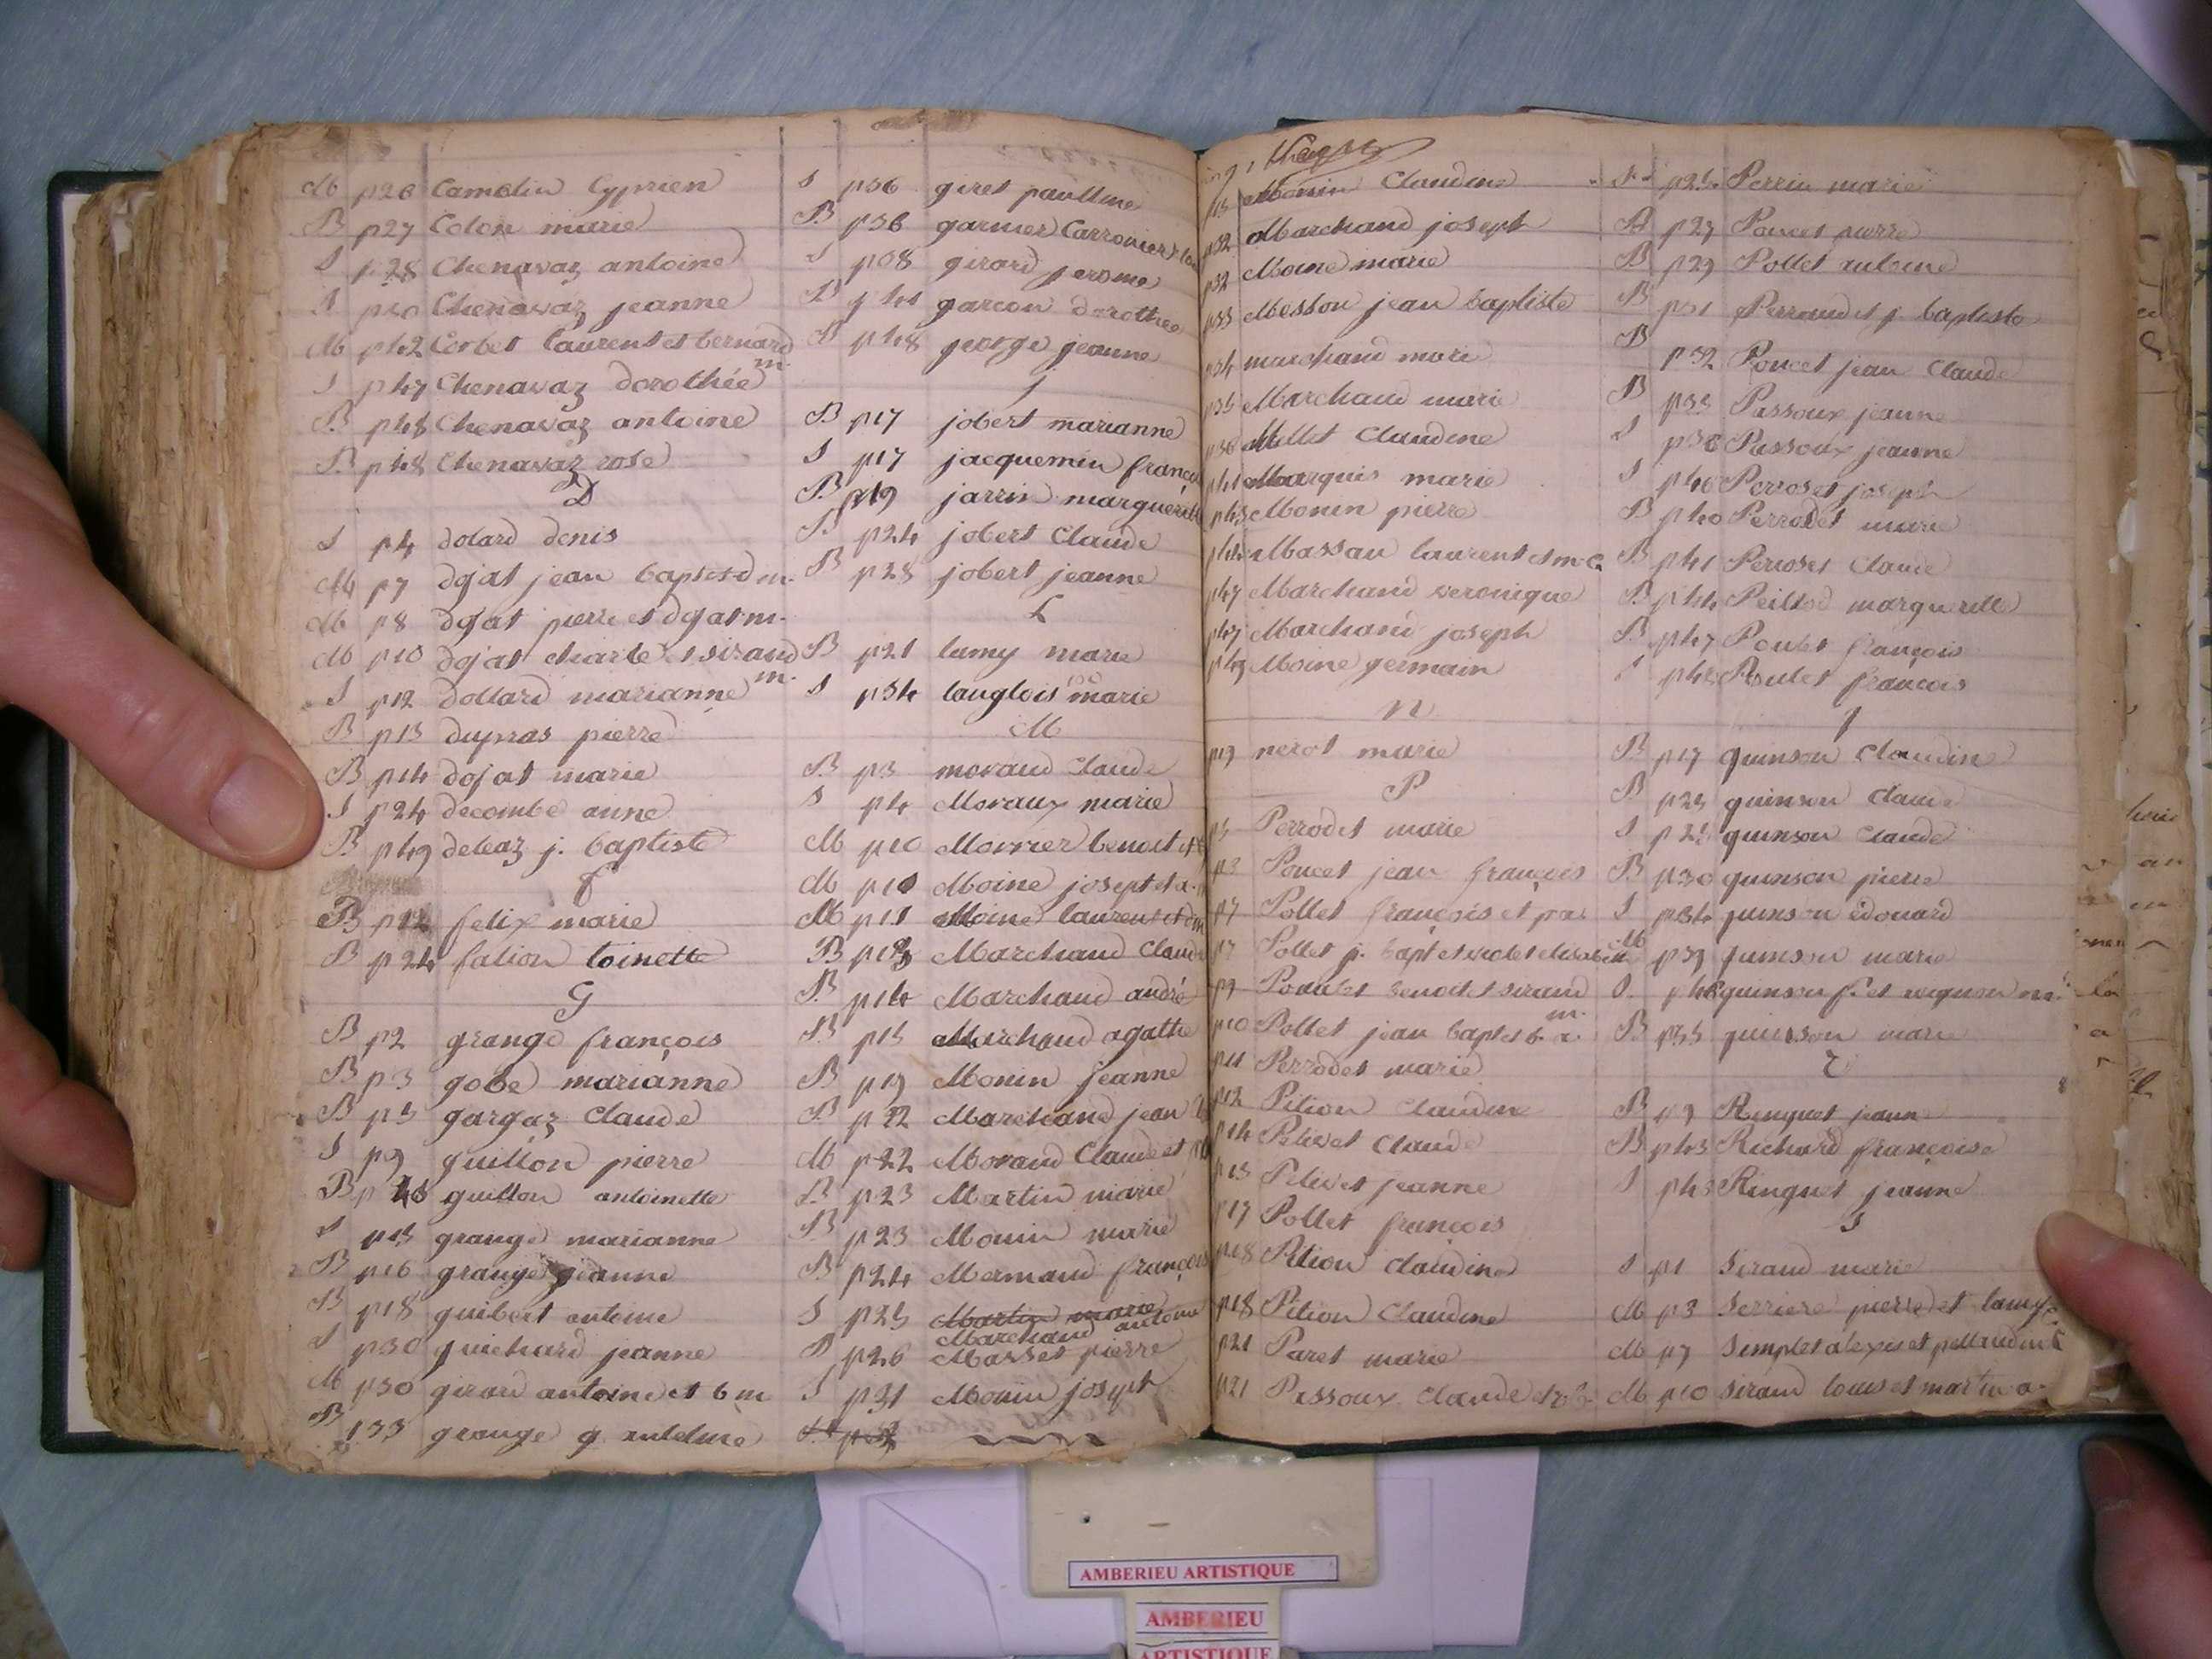 M p26 Camelin Cyprien
B p27 Colon marie
S p28 Chenavaz antoine
S p30 Chenavaz jeanne
M p42 Corbet laurent et bernard m.
S p47 Chenavaz dorothée
B p48 Chenavaz antoine
B p48 Chenavaz rose
D
S p4 dolard denis
M p7 dojat jean baptist d m.
M p8 dojat pierre et dojat m.
M p10 dojat charle et siraud m.
S p12 dollard marianne
B p13 dupras pierre
B p14 dojat marie
S p24 decombe anne
B p49 deleaz j. baptiste
f
B p12 felix marie
B p24 falion toinette
G
B p2 grange françois
B p3 gobe marianne
B p5 gargaz Claude
S p9 guillon pierre
B guillon antoinette
S p15 grange marianne
B p16 grange jeanne
B p18 guibert antoine
S p30 guichard jeanne
M p30 girard antoine et b m
B p33 grange g. antelme
S p36 giret pauline
B p36 garnier Carronier
S p38 girard jerome
B p41 garcon dorothee
B p48 george jeanne
J
B p17 jobert marianne
S p17 jacquemin franço
B p19 jarrin marguerite
B p24 jobert Claude
B p28 jobert jeanne
L
B p21 lamy marie
S p34 langlois marie
M
B p3 moraud Claude
S p4 Moraux marie
M p10 Morrier benoit et
M p10 Moine joseph et a.
M p11 Moine laurent et
B p13 Marchand Claude
B p14 Marchand andré
B p15 Marchand agathe
B p19 Monin jeanne
B p22 Marchand jean
M p22 Moraud Claude et
B p23 Martin marie
B p23 Monin marie
B p24 Mermand françois
S p25 Martin marie
Marchand antoine
p26 Masset pierre
S p31 Monin joseph
Monin Claudine
p32 Marchand joseph
p32 Moine marie
p33 Messon jean baptiste
p34 marchand marie
p35 Marchand marie
p36 Mellet Claudine
p41 Marquis marie
p43 Monin pierre
p44 Massau laurent et m C.
p47 Marchand veronique
p47 Marchand joseph
p49 Moine germain
n
p19 nerot marie
P
Perrodet marie
p3 Poucet jean françois
p7 Pollet françois et
p7 Pollet j. bapt et violet elisabeth
p9 benoit et siraud m.
p10 Pollet jean baptist b. a.
p11 Perrodet marie
p12 Pition Claudine
p14 Pelivet Claude
p15 Pelivet jeanne
p17 Pollet françois
p18 Pition Claudine
p18 Pition Claudine
p21 Paret marie
p21 Passoux Claude et
Perrin marie
p27 Poucet pierre
B p29 Pollet antoine
B p31 Perraudet j. baptiste
B p32 Poucet jean Claude
B p33 Passoux jeanne
S p36 Passoux jeanne
S p40 Perroset joseph
B p40 Perrodet marie
B p41 Perroset Claude
B p44 margueritte
B p47 Poulet françois
S p48 Poulet françois
q
B p17 quinson Claudine
B p25 quinson Claude
S p25 quinson Claude
B p30 quinson pierre
S p34 quinson édouard
M p39 quinson marie
quinson f. et
B p35 quinson marie
R
B p9 Ringuet jeanne
B p43 Richard françoise
S p43 Ringuet jeanne
S
S p1 Siraud marie
M p3 Serriere pierre et lamy
M p7 Simplet alexis et
M p10 Siraud louis et martin a.
AMBERIEU ARTISTIQUE
AMBERIEU
ARTISTIQUE